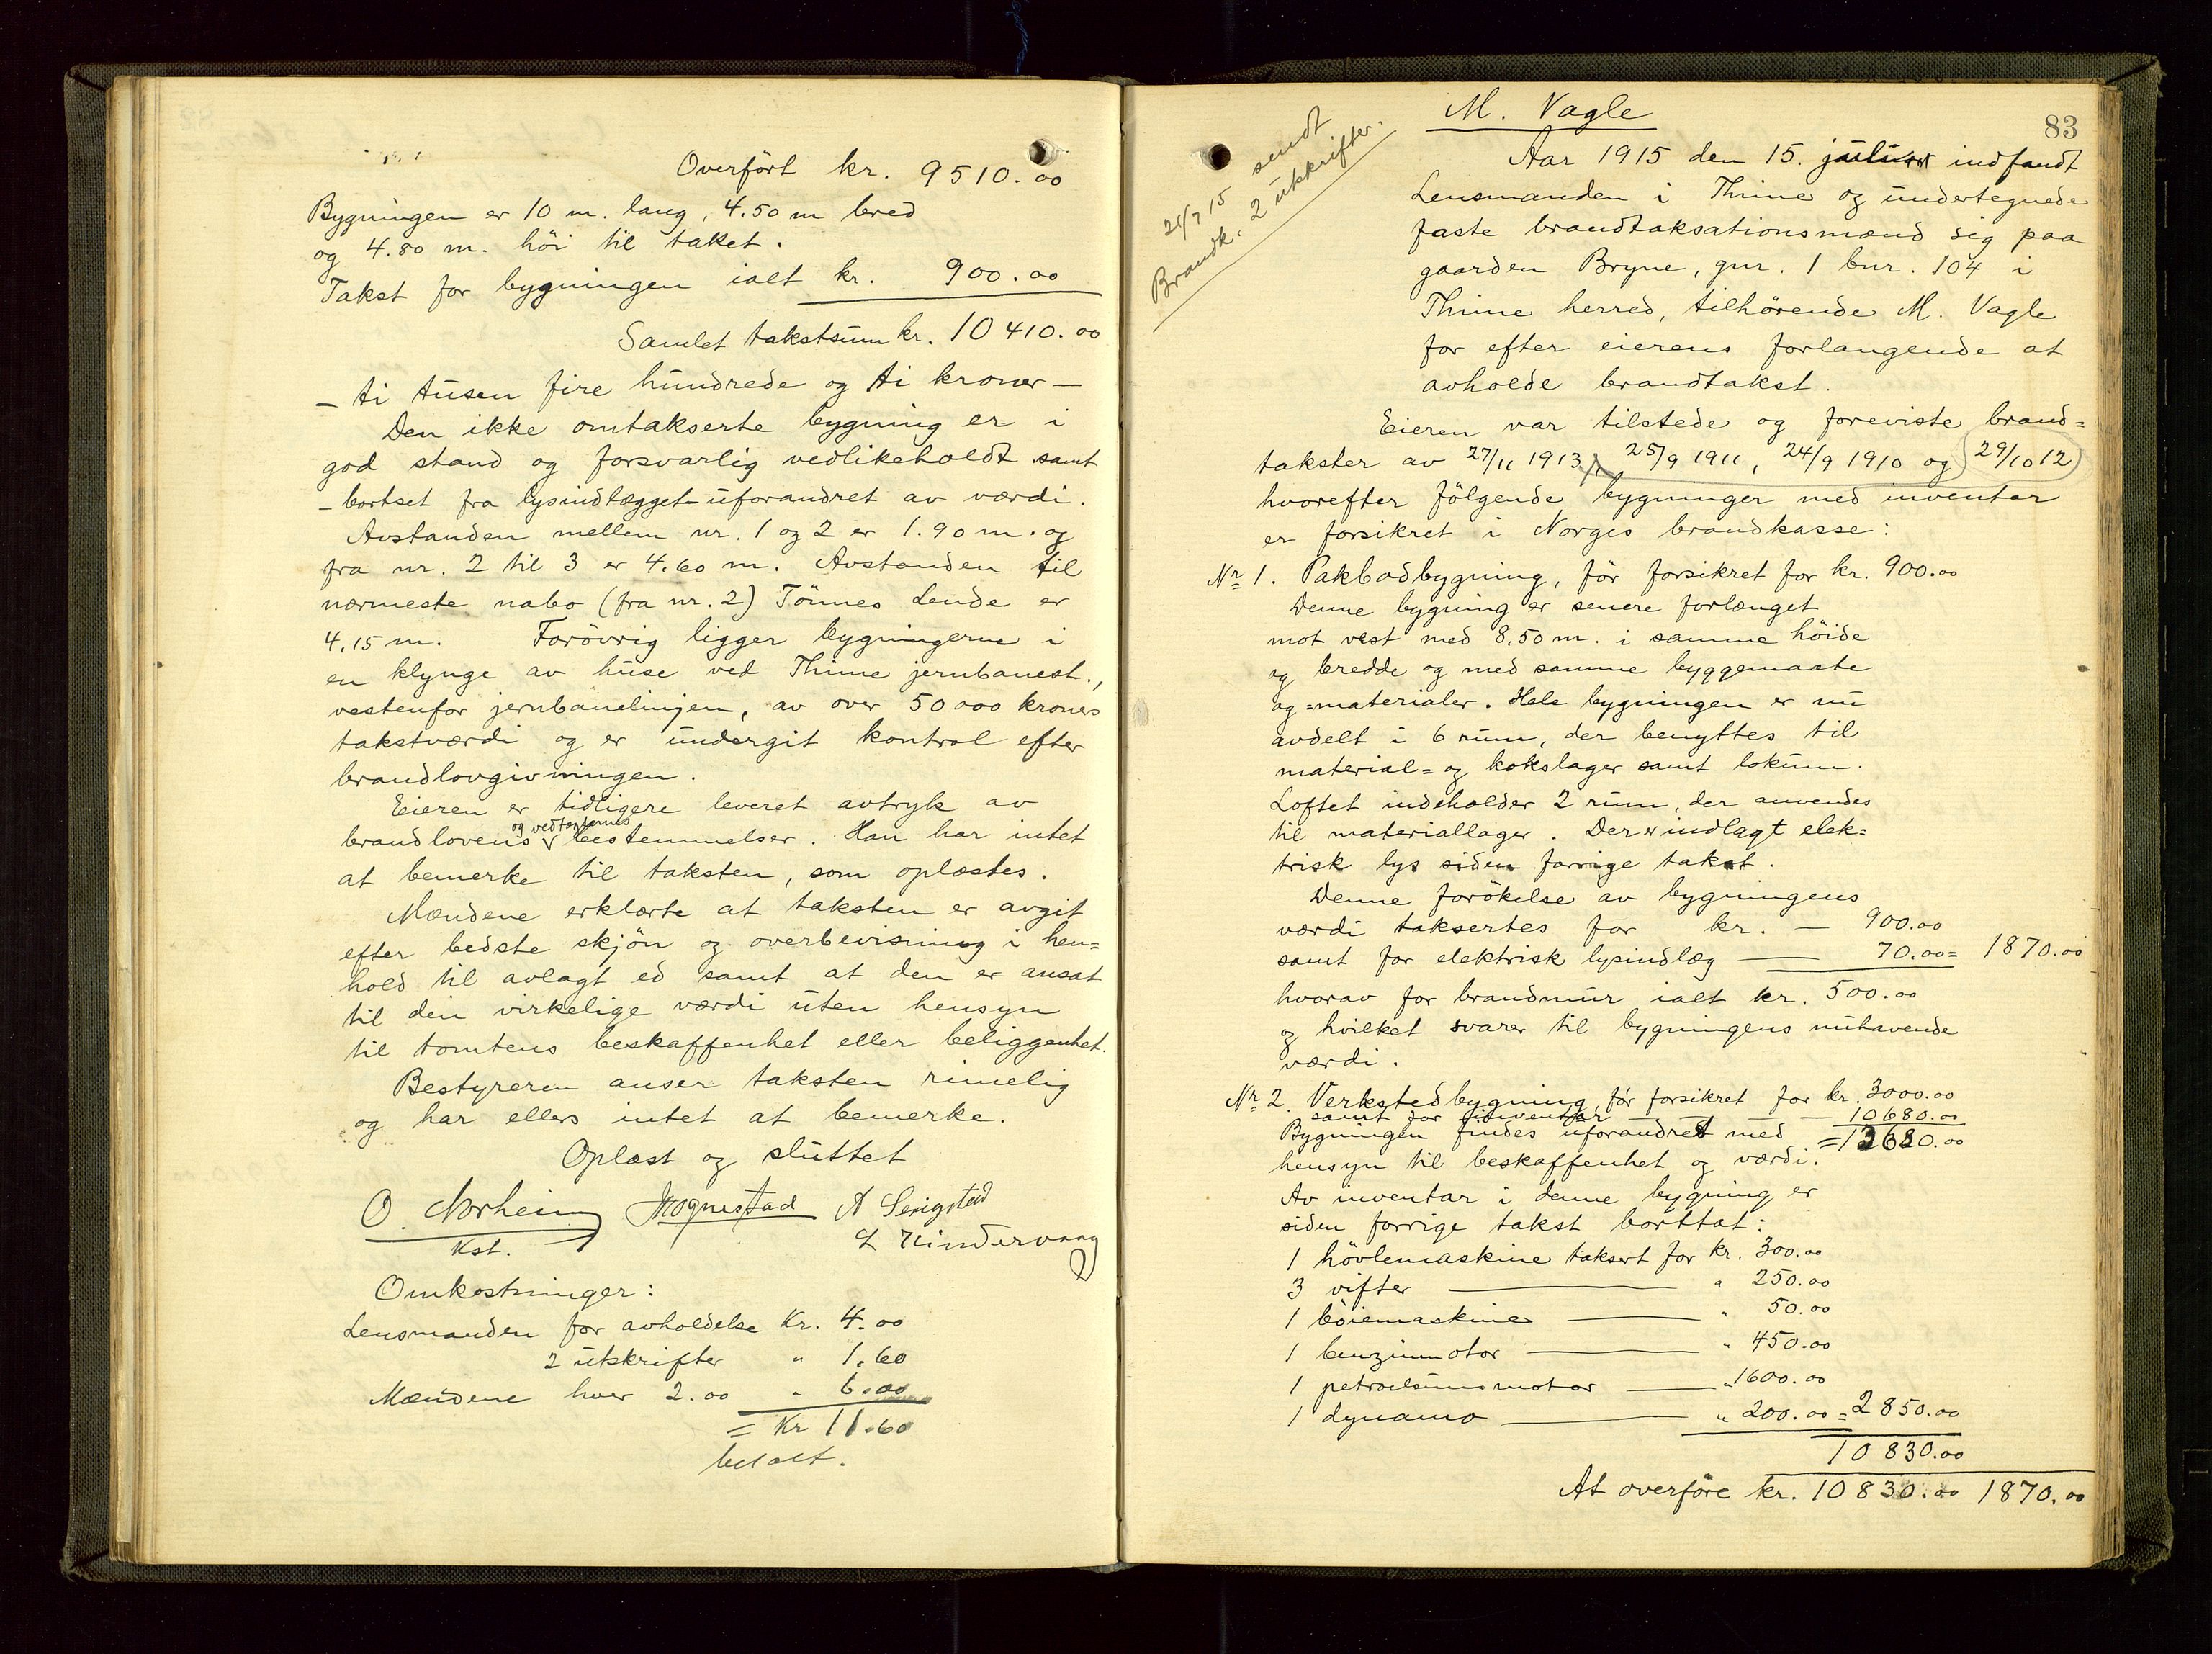 Overfört kr. 9510.00
Bygningen er 10 m. lang, 4.50 m bred
og 4.80 m. höi til taket.
Takst for bygningen ialt kr. 900.00
Samlet takstsum kr. 10410.00
– ti tusen fire hundrede og ti kroner –
Den ikke omtakserte bygning er i
god stand og forsvarlig vedlikeholdt samt
– bortset fra lysindlægget uforandret av værdi.
Avstanden mellem nr. 1 og 2 er 1.90 m. og
fra nr. 2 til 3 er 4.60 m. Avstanden til
nærmeste nabo (fra nr. 2) Tönnes Lende er
4.15 m. Forövrig ligger bygningerne i
en klynge av huse ved Thime jernbanest.,
vestenfor jernbanelinjen, av over 50000 kroners
takstværdi og er undergit kontrol efter
brandlovgivningen.
Eieren er tidligere leveret avtryk av
brandlovens og vedtægternes bestemmelser. Han har intet
at bemerke til taksten, som oplæstes.
Mændene erklærte at taksten er avgit
efter bedste skjön og overbevisning i hen=
hold til avlagt ed samt at den er ansat
til den virkelige værdi uten hensyn
til tomtens beskaffenhet eller beliggenhet.
Bestyreren anser taksten rimelig
og har ellers intet at bemerke.
Oplæst og sluttet
O. Norheim
Kst.
A Serigstad
Omkostninger:
Lensmanden for avholdelse Kr. 4.00
2 utskrifter " 1.60
Mændene hver 2.00 " 6.00
= Kr 11.60
betalt.
83
M. Vagle
Brandk. 2 utskrifter.
sendt
Aar 1915 den 15. juli indfandt
Lensmanden i Thime og undertegnede
faste brandtaksationsmænd sig paa
gaarden Bryne, gnr. 1 bnr. 104 i
Thime herred, tilhörende M. Vagle
for efter eierens forlangende at
avholde brandtakst.
Eieren var tilstede og foreviste brand=
takster av 27/11 1913, 25/9 1911, 24/9 1910 og 29/10 12
hvorefter fölgende bygninger med inventar
er forsikret i Norges brandkasse:
Nr 1. Pakbodbygning, för forsikret for kr. 900.00
Denne bygning er senere forlænget
mot vest med 8.50 m. i samme höide
og bredde og med samme byggemaate
og =materialer. Hele bygningen er nu
avdelt i 6 rum, der benyttes til
material= og kokslager samt lokum.
Loftet indeholder 2 rum, der anvendes
til materiallager. Der er indlagt elek=
trisk lys siden forrige takst.
Denne forökelse av bygningens
værdi taksertes for kr. – 900.00
samt for elektrisk lysindlæg — 70.00 = 1870.00
hvorav for brandmur ialt kr. 500.00
og hvilket svarer til bygningens nuhavende
værdi.
Nr 2. Verkstedbygning, för forsikret for kr. 3000.00
samt for inventar — — — 10680.00
Bygningen findes uforandret med = 13680.00
hensyn til beskaffenhet og værdi.
Av inventar i denne bygning er
siden forrige takst borttat:
1 hövlemaskine taksert for kr. 300.00
3 vifter — " 250.00
1 böiemaskine — " 50.00
1 benzinmotor — " 450.00
1 petroleumsmotor — " 1600.00
1 dynamo — " 200.00 = 2850.00
10830.00
At overföre kr. 10830.00 1870.00